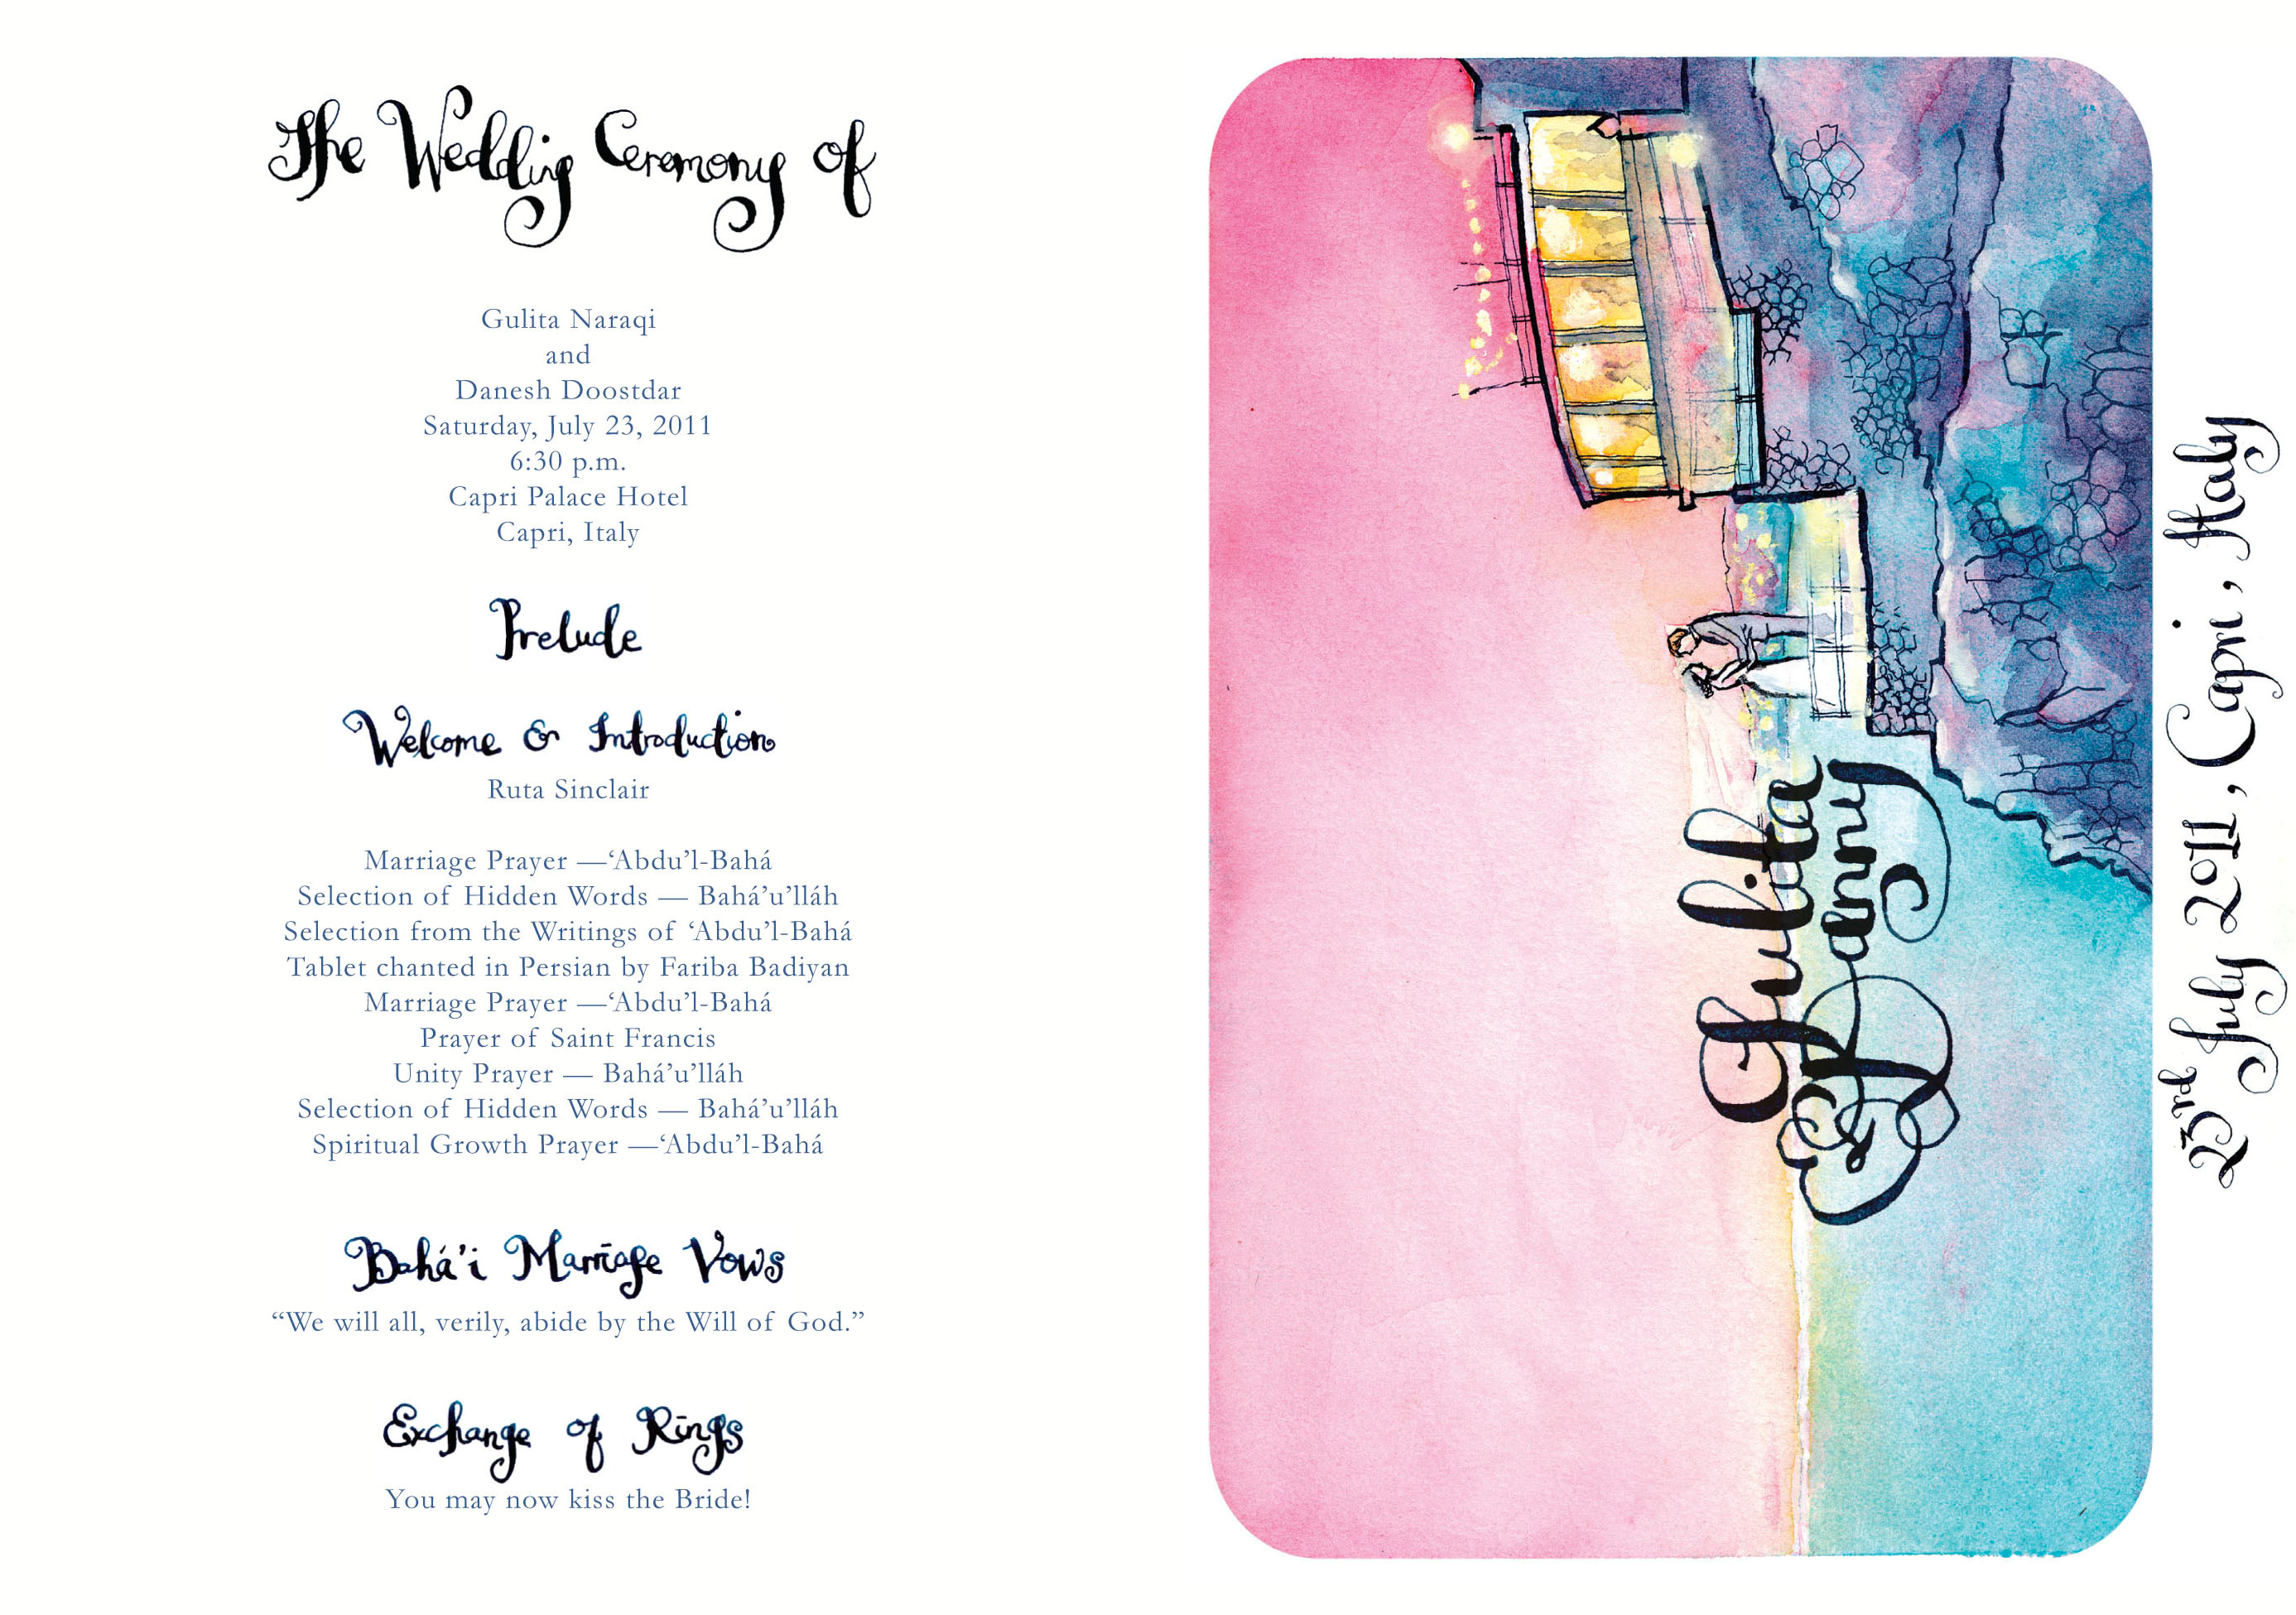 The Wedding Ceremony of
Gulita Naraqi
and
Danesh Doostdar
Saturday, July 23, 2011
6:30 p.m.
Capri Palace Hotel
Capri, Italy
Prelude
Welcome & Introduction
Ruta Sinclair
Marriage Prayer —‘Abdu’l-Bahá
Selection of Hidden Words — Bahá’u’lláh
Selection from the Writings of ‘Abdu’l-Bahá
Tablet chanted in Persian by Fariba Badiyan
Marriage Prayer —‘Abdu’l-Bahá
Prayer of Saint Francis
Unity Prayer — Bahá’u’lláh
Selection of Hidden Words — Bahá’u’lláh
Spiritual Growth Prayer —‘Abdu’l-Bahá
Bahá’i Marriage Vows
“We will all, verily, abide by the Will of God.”
Exchange of Rings
You may now kiss the Bride!
Gulita
& Danny
23rd July 2011, Capri, Italy